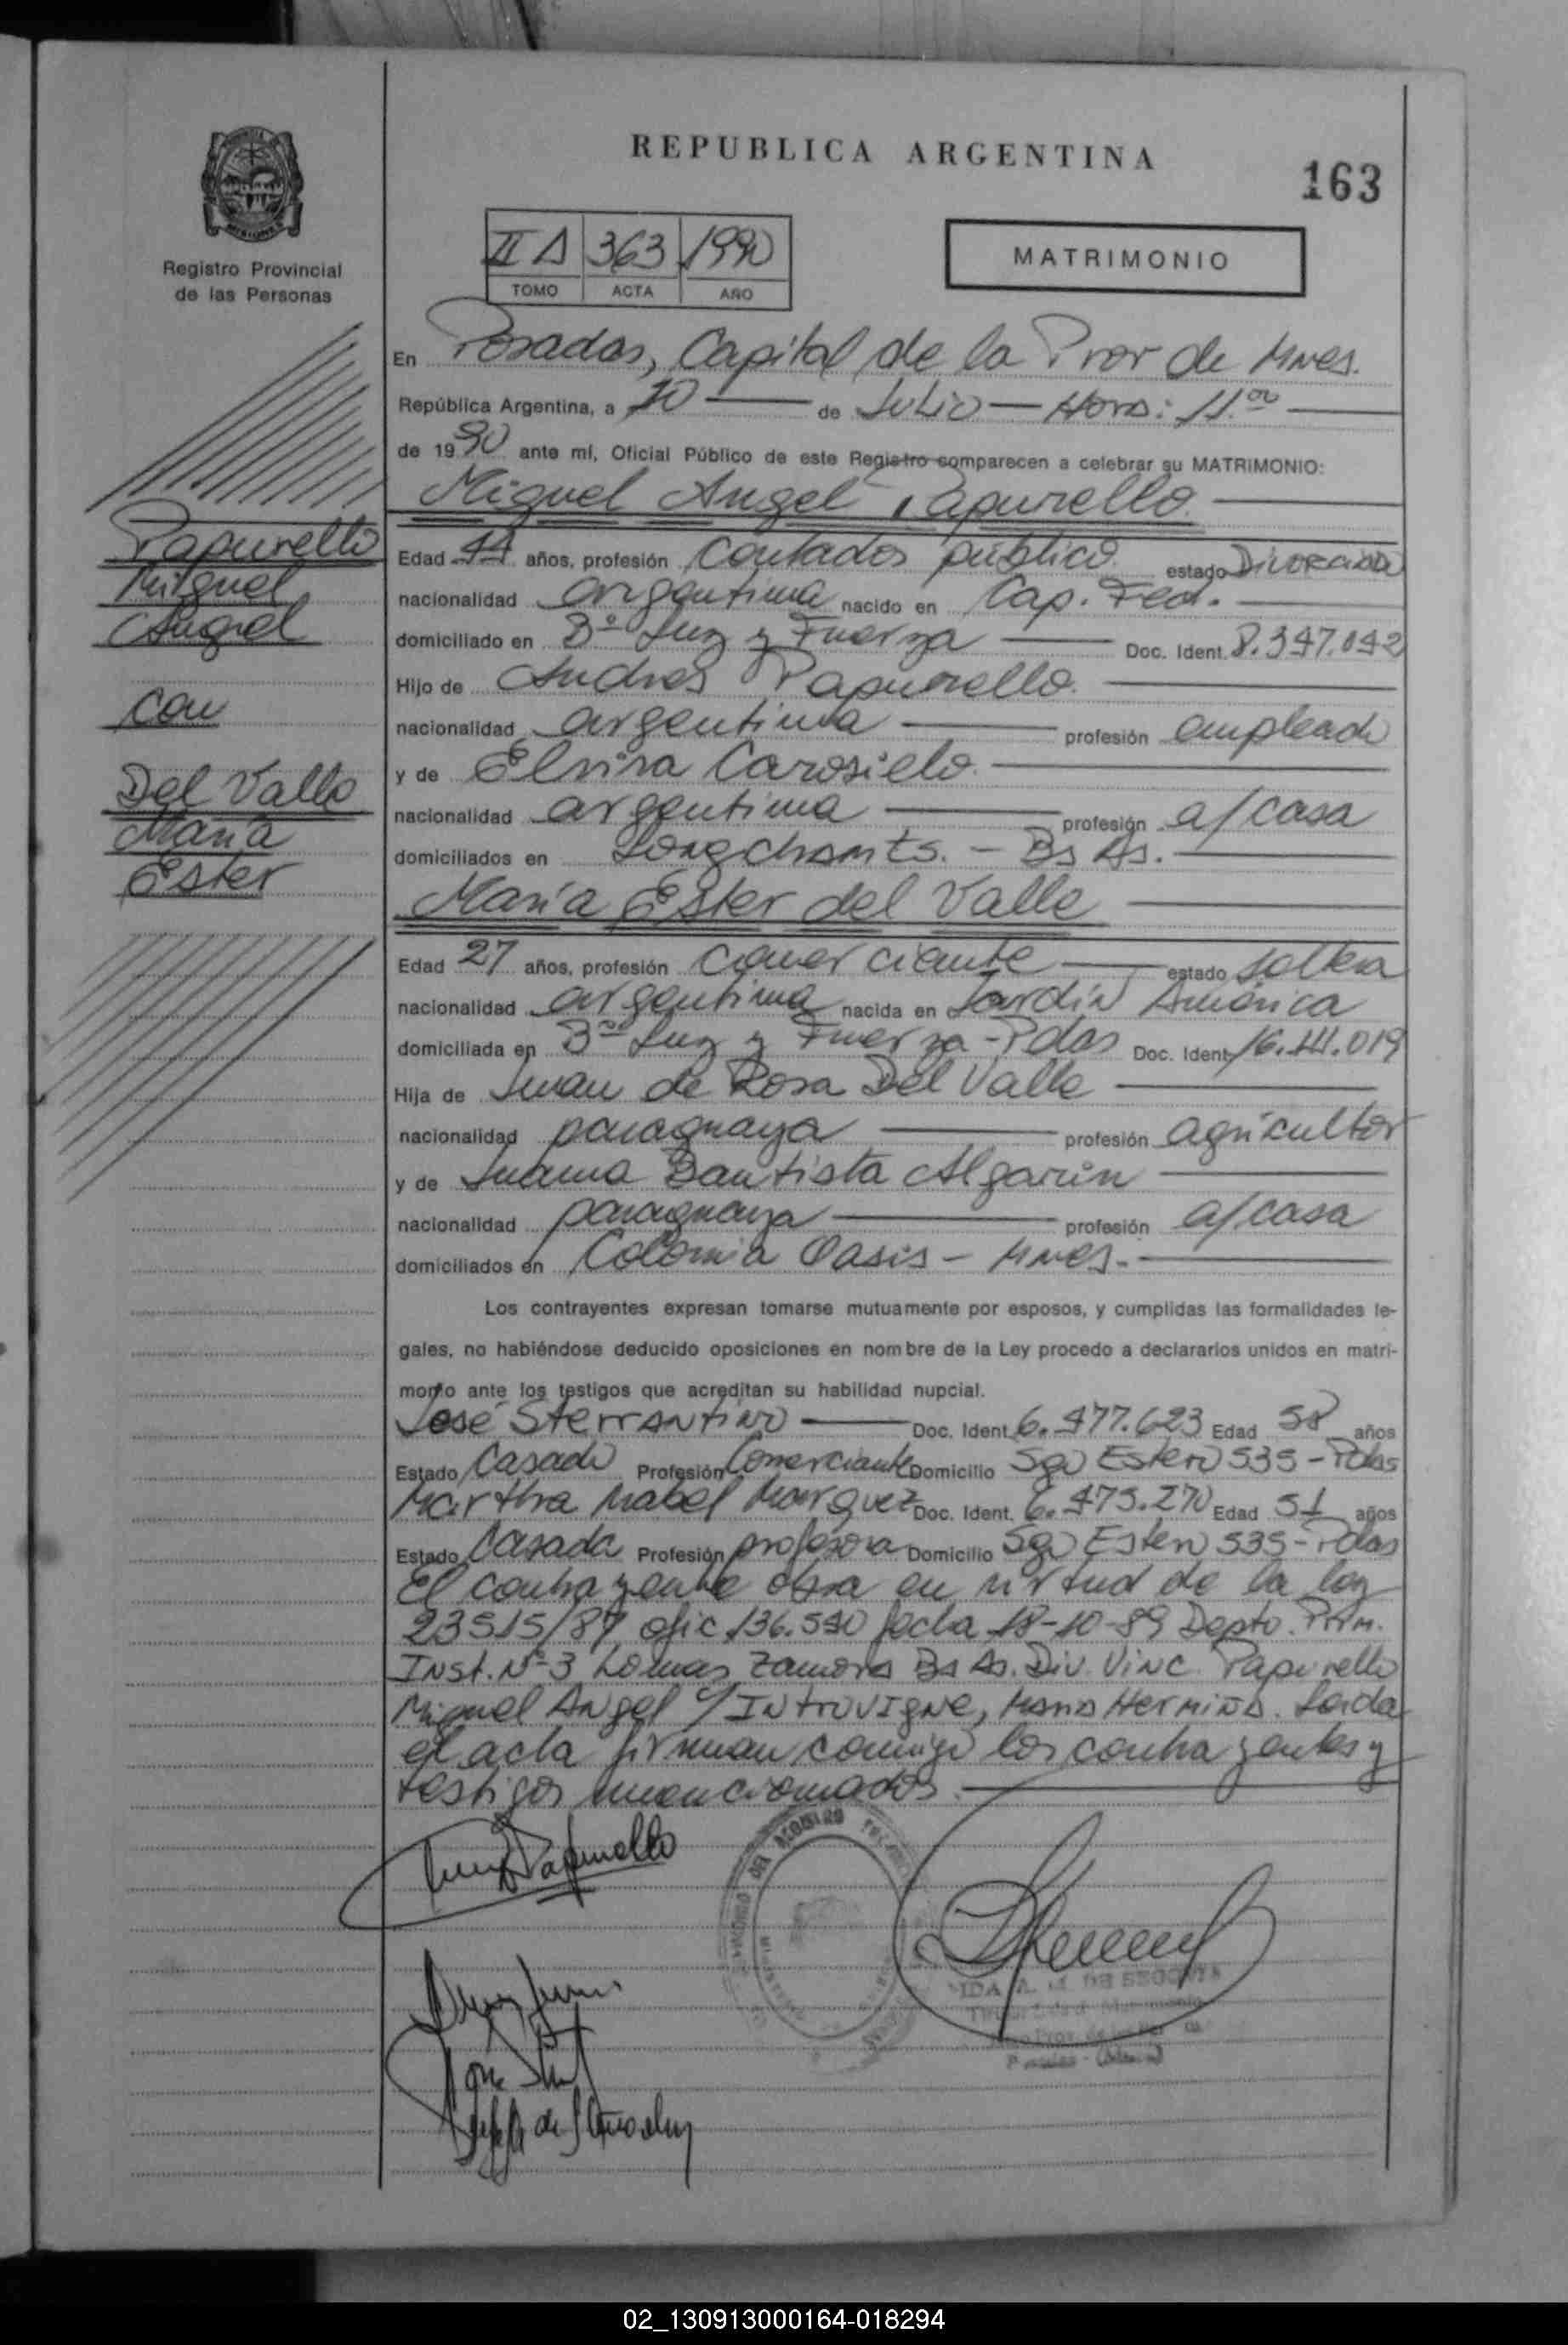 REPUBLICA ARGENTINA
163
Registro Provincial
de las Personas
II A 363 1990
TOMO ACTA AÑO
MATRIMONIO
En Posadas, Capital de la Prov de Mnes.
República Argentina, a 20 de Julio - Hora: 11.00
de 1990 ante mí, Oficial Público de este Registro comparecen a celebrar su MATRIMONIO:
Miguel Angel Papurello
Papurello
Miguel
Angel
con
Del Valle
María
Ester
Edad 44 años, profesión Contador público estado Divorciado
nacionalidad argentina nacido en Cap. Fed.
domiciliado en Bº Luz y Fuerza Doc. Ident. 8.347.042
Hijo de Andres Papurello.
nacionalidad argentina profesión empleado
y de Elvira Carosielo.
nacionalidad argentina profesión a/casa
domiciliados en Bs As.
María Ester del Valle
Edad 27 años, profesión comerciante estado soltera
nacionalidad argentina nacida en Jardín América
domiciliada en Bº Luz y Fuerza - Pdas Doc. Ident. 16. .019
Hija de Juan de Rosa Del Valle
nacionalidad paraguaya profesión agricultor
y de Juana Bautista Algarin
nacionalidad paraguaya profesión a/casa
domiciliados en Colonia Oasis - Mnes.
Los contrayentes expresan tomarse mutuamente por esposos, y cumplidas las formalidades le-
gales, no habiéndose deducido oposiciones en nombre de la Ley procedo a declararlos unidos en matri-
monio ante los testigos que acreditan su habilidad nupcial.
José Sterrantino Doc. Ident. 6.477.623 Edad 58 años
Estado Casado Profesión Comerciante Domicilio Sgo Estero 535 - Pdas
Martha Mabel Marquez Doc. Ident. 6.475.270 Edad 51 años
Estado Casada Profesión profesora Domicilio Sgo Estero 535 - Pdas
El contrayente obra en virtud de la ley
23515/87, ofic. 136.590 fecha 18-10-89 Depto. Prim.
Inst. Nº 3 Lomas Zamora Bs As. Div. Vinc. Papurello
Miguel Angel c/ Introvigne, Maria Herminia. Leida
el acta firman conmigo los contrayentes y
testigos mencionados.
Papurello
DEL REGISTRO
DE SEGOVIA
02_130913000164-018294